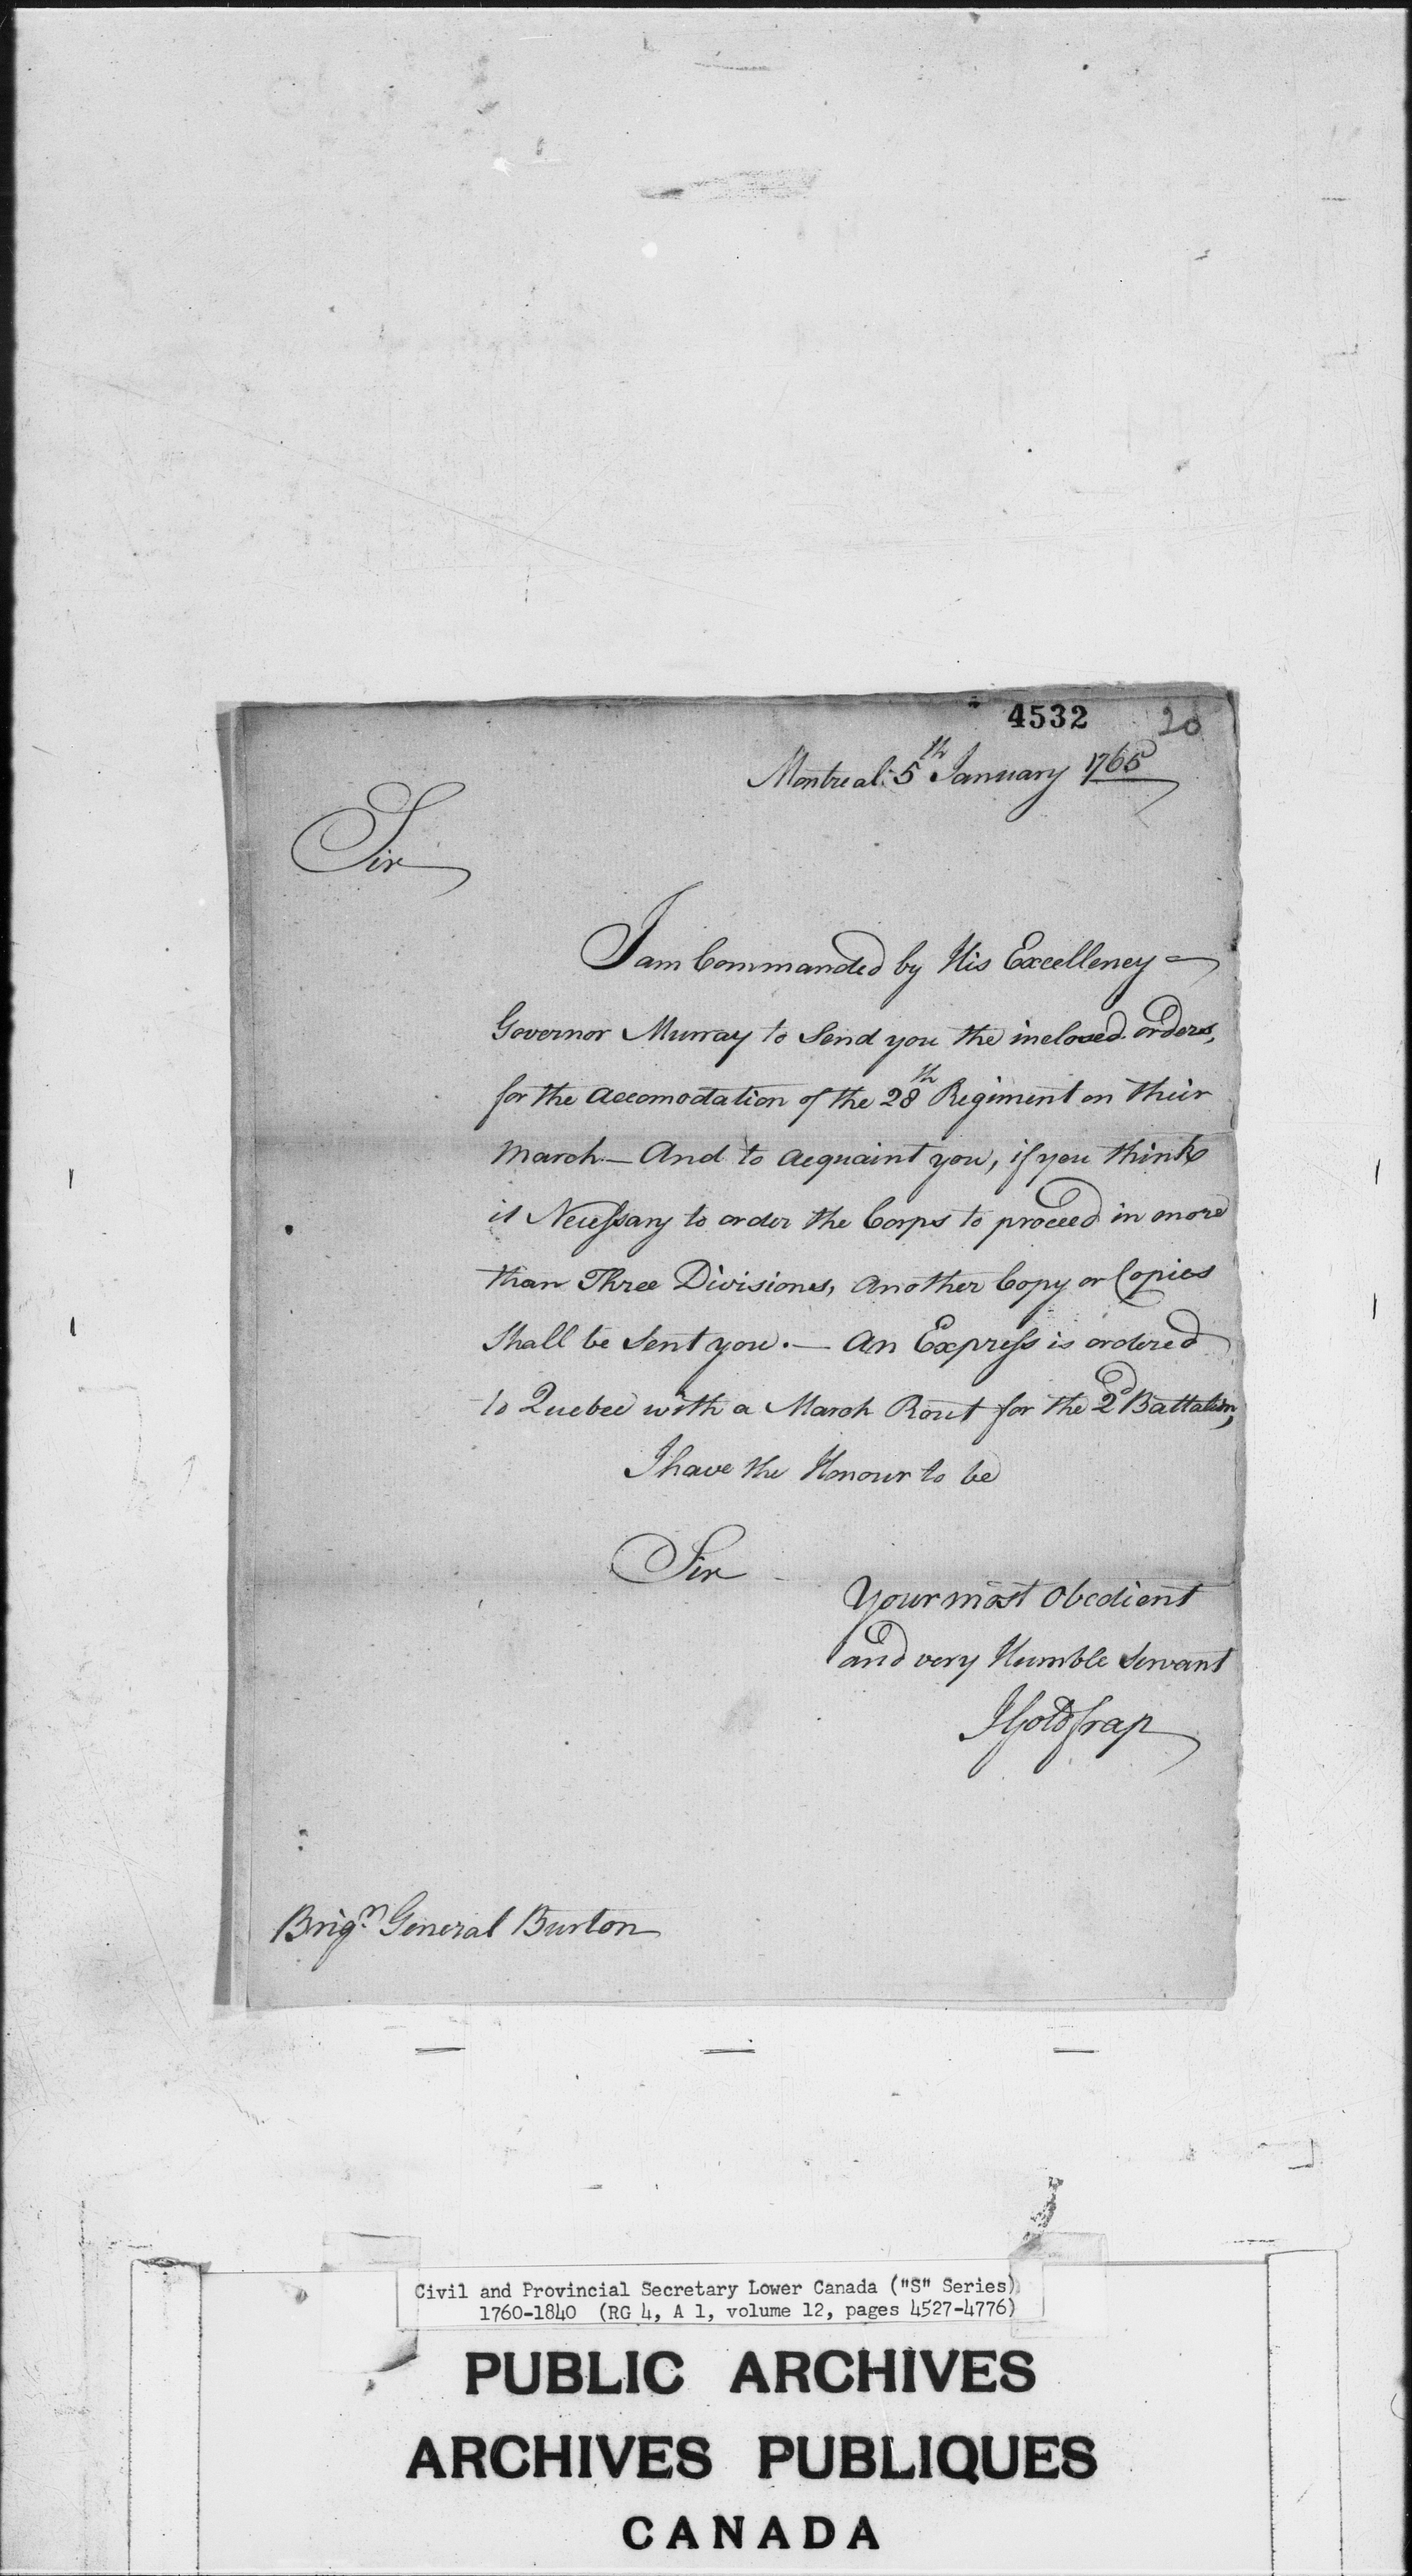 4532 20
Montreal: 5th January 1765
Sir
I am Commanded by His Excellency
Governor Murray to Send you the inclosed orders,
for the accomodation of the 28th Regiment on their
march— And to acquaint you, if you think
it Necessary to order the Corps to proceed in more
than Three Divisions, another Copy or Copies
Shall be Sent you.— An Express is ordered
to Quebec with a March Rout for the 2d Battalion,
I have the Honour to be
Sir
Your most Obedient
and very Humble Servant
JGoldfrap
Brigr. General Burton
Civil and Provincial Secretary Lower Canada ("S" Series)
1760-1840 (RG 4, A 1, volume 12, pages 4527-4776)
PUBLIC ARCHIVES
ARCHIVES PUBLIQUES
CANADA